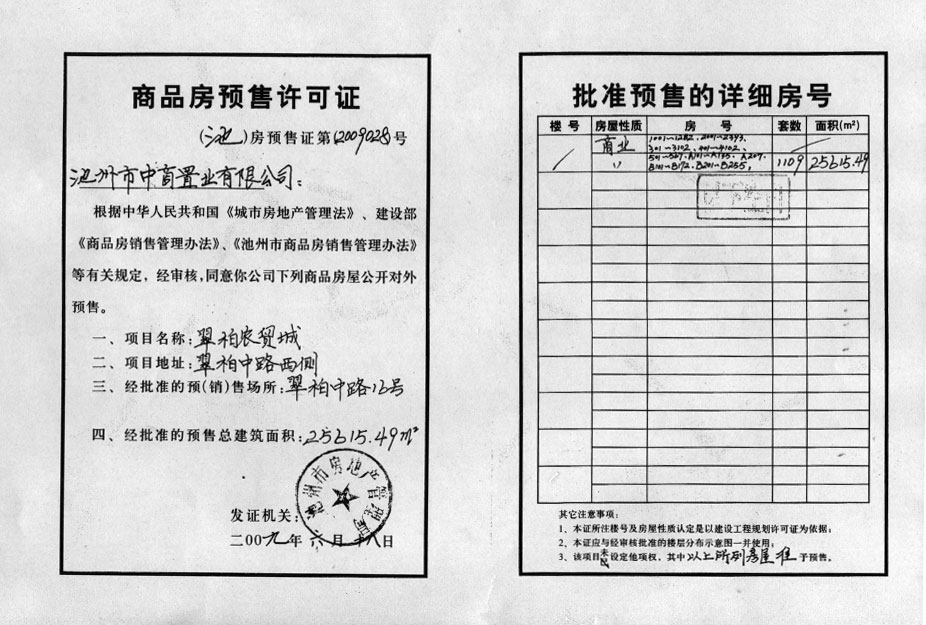 商品房预售许可证
(池)房预售证第2009028号
池州市中商置业有限公司:
根据中华人民共和国《城市房地产管理法》、建设部
《商品房销售管理办法》、《池州市商品房销售管理办法》
等有关规定,经审核,同意你公司下列商品房屋公开对外
预售。
一、项目名称:翠柏农贸城
二、项目地址:翠柏中路西侧
三、经批准的预(销)售场所:翠柏中路16号
四、经批准的预售总建筑面积:25615.49m²
池州市房地产管理局
发证机关:
二00九年六月十八日
批准预售的详细房号
楼号 房屋性质 房号 套数 面积(m²)
商业 1001~1282、2001~2393、
301~3102、401~4102、
〃 501~567、A101~A135、A207、 1109 25615.49
B101~B172、B201~B255,
其它注意事项:
1、本证所注楼号及房屋性质认定是以建设工程规划许可证为依据;
2、本证应与经审核批准的楼层分布示意图一并使用;
3、该项目未设定他项权,其中以上所列房屋准予预售。